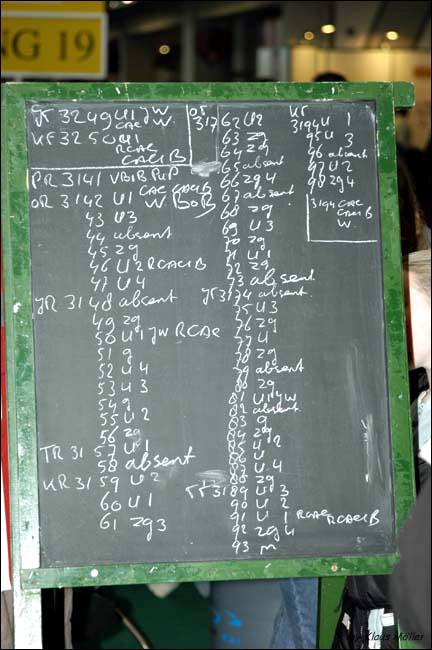 NG 19
JK 3249 U1 JW
CAC W.
KF 3250 U1
RCAC
CACIB
PR 3141 VB1B PUP
CAC CACIB
OR 3142 U1 W BOB
43 U3
44 absent
45 zg
46 U2 RCACIB
47 U4
JR 31 48 absent
49 zg
50 U1 JW RCAC
51 g
52 U4
53 U3
54 g
55 U2
56 zg
TR 31 57 U1
58 absent
KR 31 59 U2
60 U1
61 zg3
OF
317
62 U2
63 zg
64 zg
65 absent
66 zg4
67 absent
68 zg
69 U3
70 zg
71 U1
72 zg
73 absent
JT 31 74 absent
75 U3
76 zg
77 U
78 zg
79 absent
80 zg
81 U1 JW
82 absent
83 g
84 zg
85 U2
86 U1
87 U4
88 zg
31 89 U3
90 U2
91 U1 RCAC RCACIB
92 zg4
93 m
KF
3194 U 1
95 U 3
96 absent
97 U2
98 zg4
3194 CAC
CACIB
W
Klaus Möller